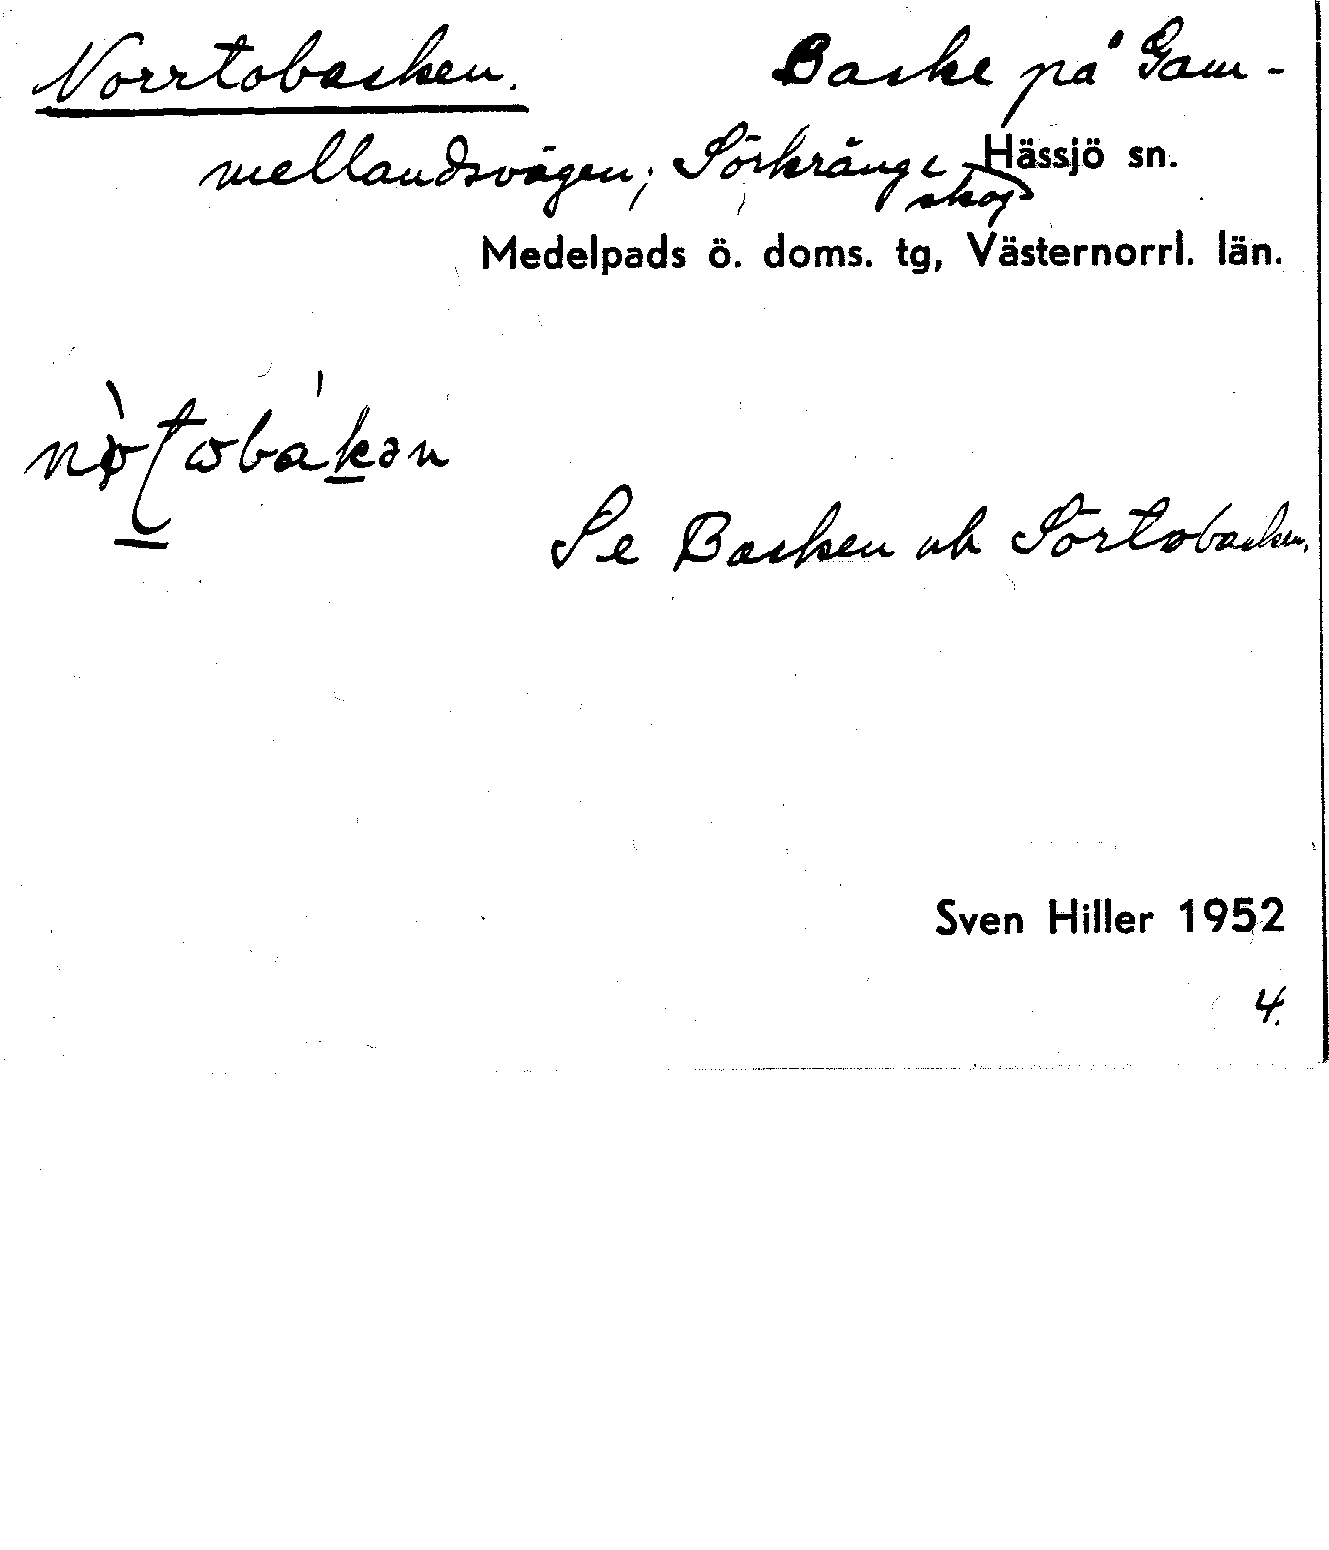 Norrtobacken. Backe på Gam-
mellandsvägen; Sörkrånge skog Hässjö sn.
Medelpads ö. doms. tg, Västernorrl. län.
Se Backen och Sörtobacken.
Sven Hiller 1952
4.